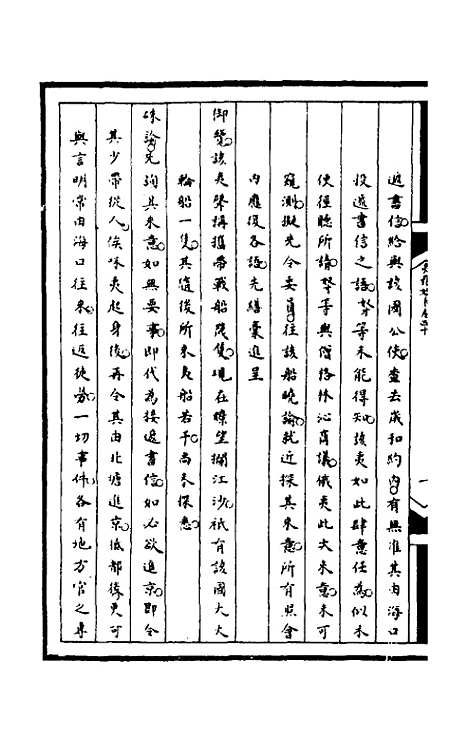 遞書信給與該國公使查去歲和約內有無准其由海口
投遞書信之語等未能得知該夷如此肆意任為似未
便徑聽所請等與僧格林沁商議俄夷此次來意未可
窺測擬先令委員往該船曉諭就近探其來意所有照會
內應復各語先繕彙進呈
御覽該夷聲稱攜帶戰船幾隻現在瞭望攔江沙祇有該國大火
輪船一隻其隨後所來夷船若干尚未探悉
硃諭先詢其來意如無要事即代為接遞書信如必欲進京即令
其少帶從人俟咪夷起身後再令其由北塘進京抵都後更可
與言明常由海口往來往返徒勞一切事件各有地方官之專